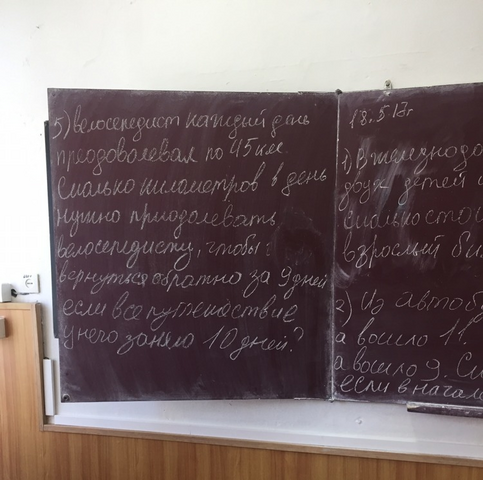 5) велосепедист каждый день
преодоволевал по 45 км.
Сколько километров в день
нужно приодолевать
велосепедисту, чтобы
вернуться обратно за 9 дней
если все путешествие
у него заняло 10 дней?
18.5.17г
1) В железнодо
двух детей и
сколько стои
взрослый би
2) Из автобу
а вошло 11.
а вошло 9. Ск
если в начале